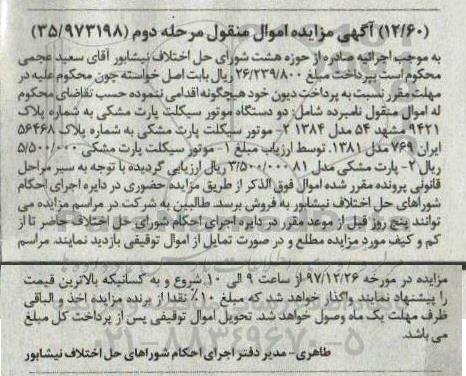 (۱۲/۶۰) آگهی مزایده اموال منقول مرحله دوم (۳۵/۹۷۳۱۹۸)
به موجب اجرائیه صادره از حوزه هشت شورای حل اختلاف نیشابور آقای سعید عجمی
محکوم است بپرداخت مبلغ ۲۶/۲۳۹/۸۰۰ ریال بابت اصل خواسته چون محکوم علیه در
مهلت مقرر نسبت به پرداخت دیون خود هیچگونه اقدامی ننموده حسب تقاضای محکوم
له اموال منقول نامبرده شامل: دو دستگاه موتور سیکلت پارت مشکی به شماره پلاک
۹۴۲۱ مشهد ۵۴ مدل ۱۳۸۴ ۲- موتور سیکلت پارت مشکی به شماره پلاک ۵۶۴۶۸
ایران ۷۶۹ مدل ۱۳۸۱. توسط ارزیاب مبلغ ۱- موتور سیکلت پارت مشکی ۵/۵۰۰/۰۰۰
ریال ۲- پارت مشکی مدل ۸۱ ۳/۵۰۰/۰۰۰ ریال ارزیابی گردیده با توجه به سیر مراحل
قانونی پرونده مقرر شده اموال فوق الذکر از طریق مزایده حضوری در دایره اجرای احکام
شوراهای حل اختلاف نیشابور به فروش برسد. طالبین به شرکت در مراسم مزایده می
توانند پنج روز قبل از موعد مقرر در دایره اجرای احکام شورای حل اختلاف حاضر تا از
کم و کیف مورد مزایده مطلع و در صورت تمایل از اموال توقیفی بازدید نمایند. مراسم
مزایده در مورخه ۹۷/۱۲/۲۶ از ساعت ۹ الی ۱۰ شروع و به کسانیکه بالاترین قیمت
را پیشنهاد نمایند واگذار خواهد شد که مبلغ ۱۰٪ نقدا از برنده مزایده اخذ و الباقی
ظرف مهلت یک ماه وصول خواهد شد. تحویل اموال توقیفی پس از پرداخت کل مبلغ
می باشد.
طاهری- مدیر دفتر اجرای احکام شوراهای حل اختلاف نیشابور
۰۲۱-۸۸۳۴۹۶۷۰-۵